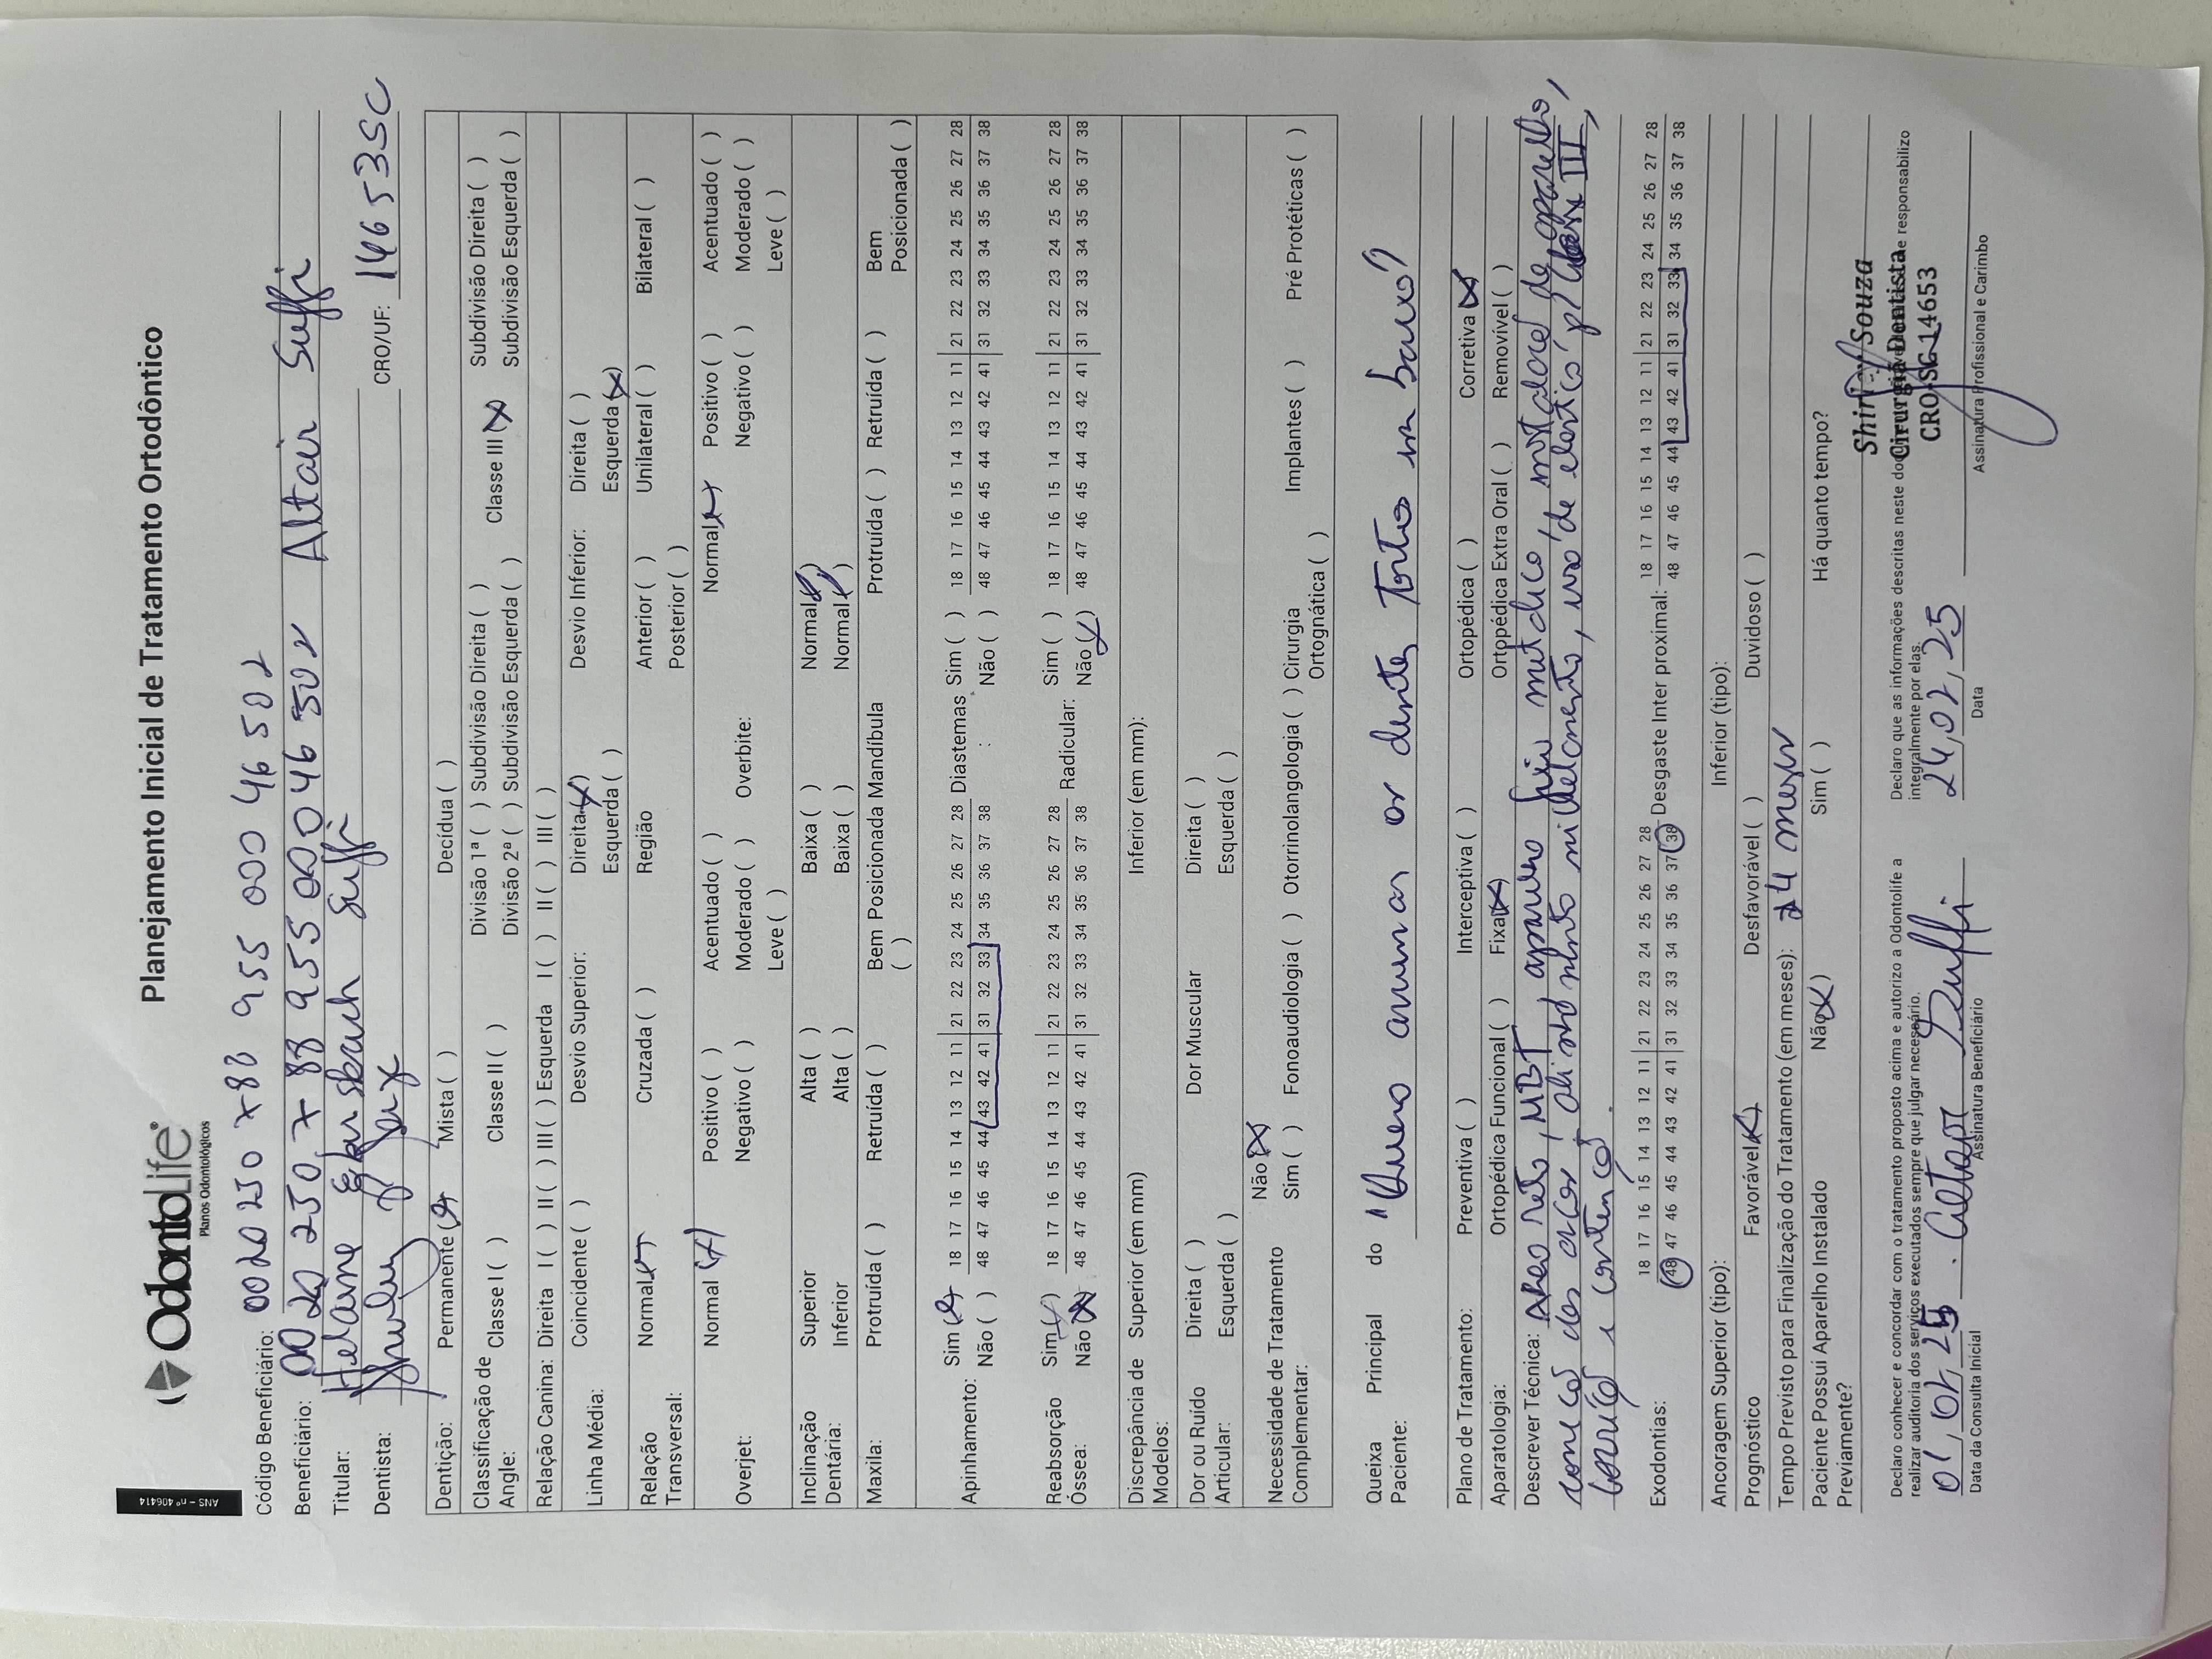 ANS – nº 406414
OdontoLife®
Planos Odontológicos
Planejamento Inicial de Tratamento Ortodôntico
Código Beneficiário: 0020 250 788 955 000 46 502
Beneficiário: 0020 250 788 955 000 46 502 Altair Suffi
Titular: Helaine Suffi
Dentista: CRO/UF: 14653SC
Dentição: Permanente (x) Mista ( ) Decídua ( )
Classificação de Angle: Classe I ( ) Classe II ( ) Divisão 1ª ( ) Subdivisão Direita ( ) Classe III (x) Subdivisão Direita ( )
Divisão 2ª ( ) Subdivisão Esquerda ( ) Subdivisão Esquerda ( )
Relação Canina: Direita I ( ) II ( ) III ( ) Esquerda I ( ) II ( ) III ( )
Linha Média: Coincidente ( ) Desvio Superior: Direita (x) Desvio Inferior: Direita ( )
Esquerda ( ) Esquerda (x)
Relação Transversal: Normal (x) Cruzada ( ) Região Anterior ( ) Unilateral ( ) Bilateral ( )
Posterior ( )
Overjet: Normal (x) Positivo ( ) Acentuado ( ) Overbite: Normal (x) Positivo ( ) Acentuado ( )
Negativo ( ) Moderado ( ) Negativo ( ) Moderado ( )
Leve ( ) Leve ( )
Inclinação Dentária: Superior Alta ( ) Baixa ( ) Normal (x)
Inferior Alta ( ) Baixa ( ) Normal (x)
Maxila: Protruída ( ) Retruída ( ) Bem Posicionada ( ) Mandíbula Protruída ( ) Retruída ( ) Bem Posicionada ( )
Apinhamento: Sim (x) 18 17 16 15 14 13 12 11 | 21 22 23 24 25 26 27 28 Diastemas : Sim ( ) 18 17 16 15 14 13 12 11 | 21 22 23 24 25 26 27 28
Não ( ) 48 47 46 45 44 43 42 41 | 31 32 33 34 35 36 37 38 Não ( ) 48 47 46 45 44 43 42 41 | 31 32 33 34 35 36 37 38
Reabsorção Óssea: Sim ( ) 18 17 16 15 14 13 12 11 | 21 22 23 24 25 26 27 28 Radicular: Sim ( ) 18 17 16 15 14 13 12 11 | 21 22 23 24 25 26 27 28
Não (x) 48 47 46 45 44 43 42 41 | 31 32 33 34 35 36 37 38 Não (x) 48 47 46 45 44 43 42 41 | 31 32 33 34 35 36 37 38
Discrepância de Modelos: Superior (em mm) Inferior (em mm):
Dor ou Ruído Articular: Direita ( ) Dor Muscular Direita ( )
Esquerda ( ) Esquerda ( )
Necessidade de Tratamento Complementar: Não (x)
Sim ( ) Fonoaudiologia ( ) Otorrinolangologia ( ) Cirurgia Ortognática ( ) Implantes ( ) Pré Protéticas ( )
Queixa Principal do Paciente: "Quero arrumar os dentes tortos em baixo"
Plano de Tratamento: Preventiva ( ) Interceptiva ( ) Ortopédica ( ) Corretiva (x)
Aparatologia: Ortopédica Funcional ( ) Fixa (x) Ortopédica Extra Oral ( ) Removível ( )
Descrever Técnica: Arco reto, MBT, aparelho fixo metálico, instalação do aparelho,
dos arcos, alinhamento nivelamento, uso de elástico p/ classe III,
e contenção.
Exodontias: 18 17 16 15 14 13 12 11 | 21 22 23 24 25 26 27 28 Desgaste Inter proximal: 18 17 16 15 14 13 12 11 | 21 22 23 24 25 26 27 28
48 47 46 45 44 43 42 41 | 31 32 33 34 35 36 37 38 48 47 46 45 44 43 42 41 | 31 32 33 34 35 36 37 38
Ancoragem Superior (tipo): Inferior (tipo):
Prognóstico Favorável (x) Desfavorável ( ) Duvidoso ( )
Tempo Previsto para Finalização do Tratamento (em meses): 24 meses
Paciente Possui Aparelho Instalado Previamente? Não (x) Sim ( ) Há quanto tempo?
Declaro conhecer e concordar com o tratamento proposto acima e autorizo a Odontolife a
realizar auditoria dos serviços executados sempre que julgar necessário.
Declaro que as informações descritas neste e responsabilizo
integralmente por elas.
Shirley Souza
Cirurgiã Dentista
CRO-SC-14653
01,02,25 Altair Suffi 24,02,25
Data da Consulta Inicial Assinatura Beneficiário Data Assinatura Profissional e Carimbo